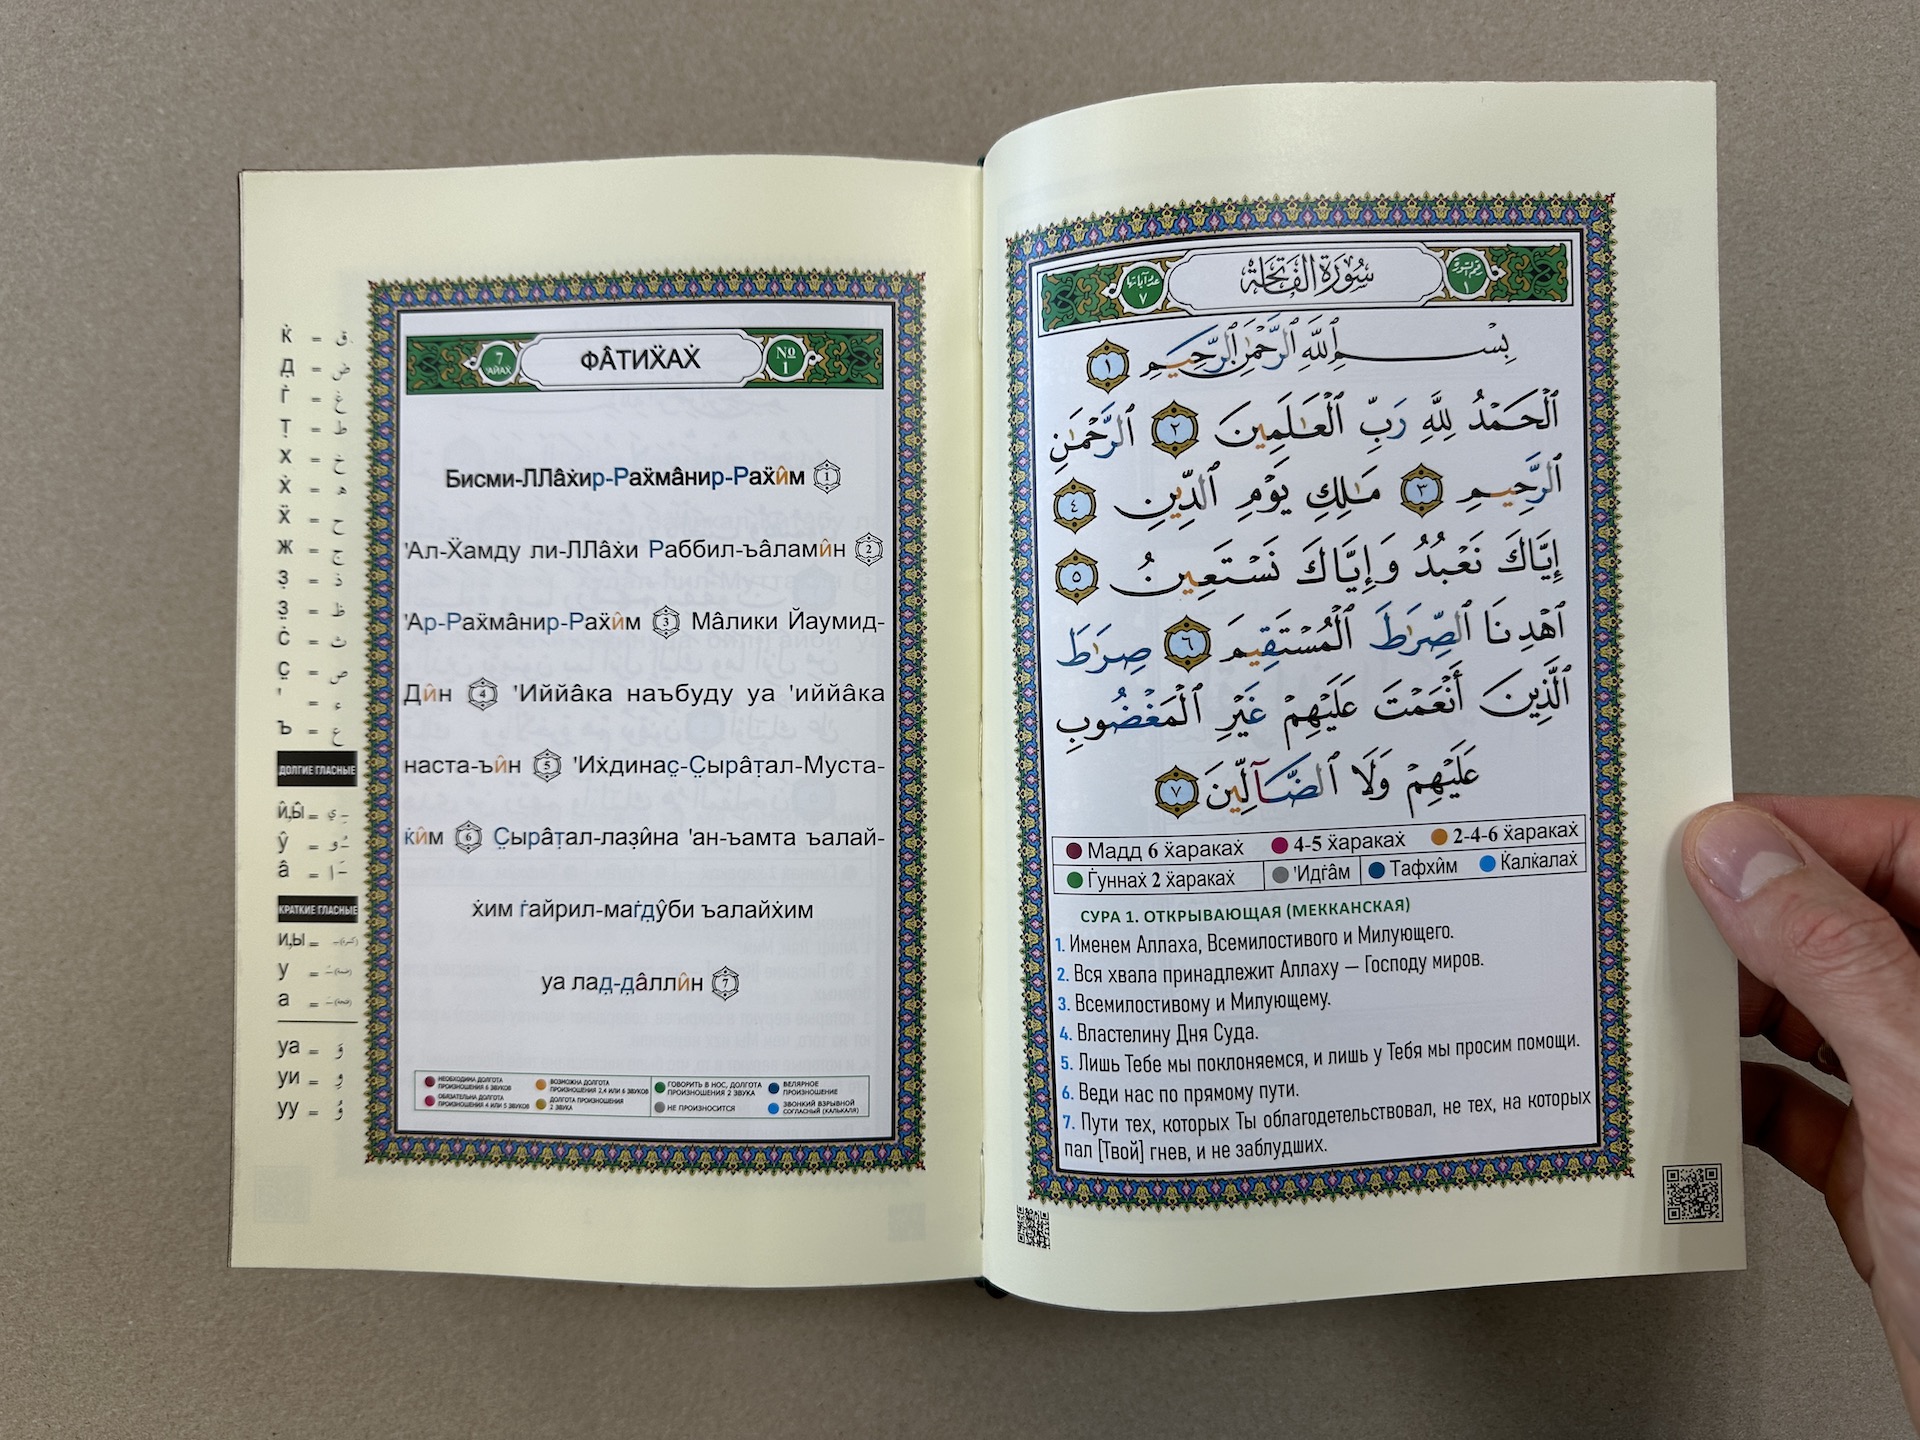 К̇ = ق
Д̣ = ض
Г̇ = غ
Т̣ = ط
Х = خ
Х̇ = ه
Х̈ = ح
Ж = ج
З̣ = ذ
З̤ = ظ
С̇ = ث
С̤ = ص
' = ء
Ъ = ع
ДОЛГИЕ ГЛАСНЫЕ
И̂,Ы̂ = ـِي
У̂ = ـُو
а̂ = ـَا
КРАТКИЕ ГЛАСНЫЕ
И,Ы = ـِ (كسرة)
У = ـُ (ضمة)
а = ـَ (فتحة)
уа = وَ
уи = وِ
уу = وُ
7 'АЙАХ̇
ФА̂ТИХ̈АХ̇
№ 1
Бисми-ЛЛа̂х̇ир-Рах̈ма̂нир-Рах̈и̂м 1
'Ал-Х̈амду ли-ЛЛа̂х̇и Раббил-ъа̂лами̂н 2
'Ар-Рах̈ма̂нир-Рах̈и̂м 3 Ма̂лики Йаумид-
Ди̂н 4 'Иййа̂ка наъбуду уа 'иййа̂ка
наста-ъи̂н 5 'Их̇динас̤-С̤ыра̂т̣ал-Муста-
к̇и̂м 6 С̤ыра̂т̣ал-лаз̣и̂на 'ан-ъамта ъалай-
х̇им г̇айрил-маг̇д̣у̂би ъалайх̇им
уа лад̣-д̣а̂лли̂н 7
НЕОБХОДИМА ДОЛГОТА ПРОИЗНОШЕНИЯ 6 ЗВУКОВ
ВОЗМОЖНА ДОЛГОТА ПРОИЗНОШЕНИЯ 2,4 ИЛИ 6 ЗВУКОВ
ГОВОРИТЬ В НОС, ДОЛГОТА ПРОИЗНОШЕНИЯ 2 ЗВУКА
ВЕЛЯРНОЕ ПРОИЗНОШЕНИЕ
ОБЯЗАТЕЛЬНА ДОЛГОТА ПРОИЗНОШЕНИЯ 4 ИЛИ 5 ЗВУКОВ
ДОЛГОТА ПРОИЗНОШЕНИЯ 2 ЗВУКА
НЕ ПРОИЗНОСИТСЯ
ЗВОНКИЙ ВЗРЫВНОЙ СОГЛАСНЫЙ (КАЛЬКАЛЯ)
رقم السورة ١
سُورَةُ الْفَاتِحَةِ
عدد آياتها ٧
بِسْمِ ٱللَّهِ ٱلرَّحْمَٰنِ ٱلرَّحِيمِ ١
ٱلْحَمْدُ لِلَّهِ رَبِّ ٱلْعَٰلَمِينَ ٢ ٱلرَّحْمَٰنِ
ٱلرَّحِيمِ ٣ مَٰلِكِ يَوْمِ ٱلدِّينِ ٤
إِيَّاكَ نَعْبُدُ وَإِيَّاكَ نَسْتَعِينُ ٥
ٱهْدِنَا ٱلصِّرَٰطَ ٱلْمُسْتَقِيمَ ٦ صِرَٰطَ
ٱلَّذِينَ أَنْعَمْتَ عَلَيْهِمْ غَيْرِ ٱلْمَغْضُوبِ
عَلَيْهِمْ وَلَا ٱلضَّآلِّينَ ٧
Мадд 6 х̈араках̇ 4-5 х̈араках̇ 2-4-6 х̈араках̇
Г̇уннах̇ 2 х̈араках̇ 'Идг̇а̂м Тафхи̂м К̇алк̇алах̇
СУРА 1. ОТКРЫВАЮЩАЯ (МЕККАНСКАЯ)
1. Именем Аллаха, Всемилостивого и Милующего.
2. Вся хвала принадлежит Аллаху — Господу миров.
3. Всемилостивому и Милующему.
4. Властелину Дня Суда.
5. Лишь Тебе мы поклоняемся, и лишь у Тебя мы просим помощи.
6. Веди нас по прямому пути.
7. Пути тех, которых Ты облагодетельствовал, не тех, на которых
пал [Твой] гнев, и не заблудших.